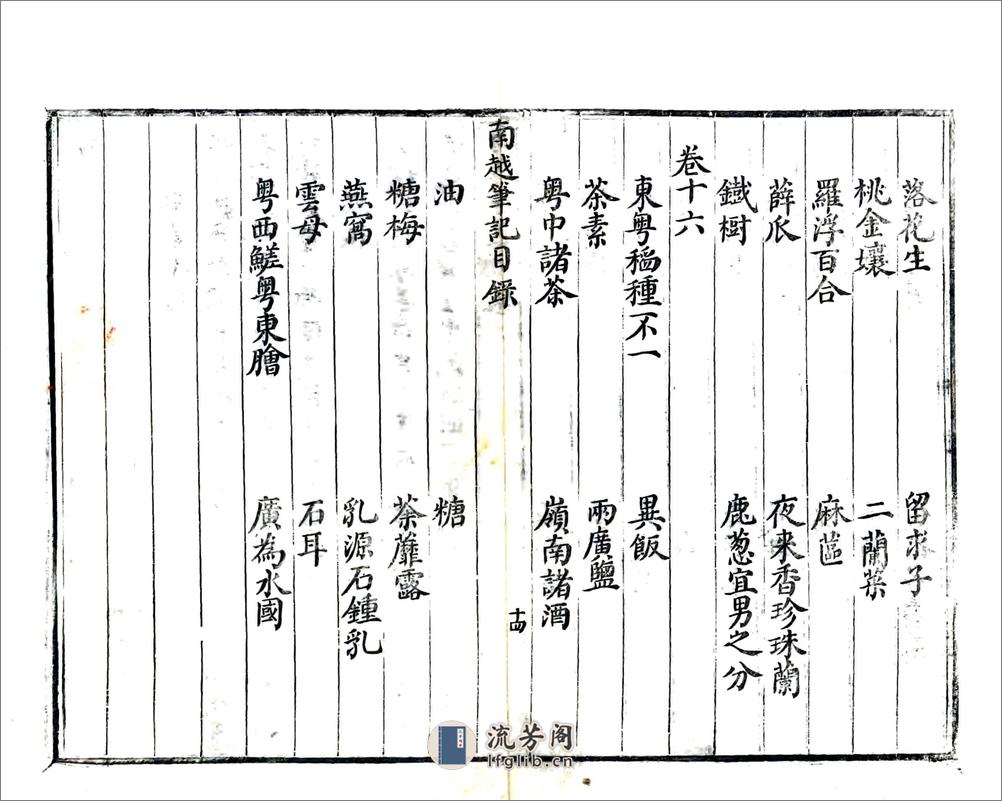 落花生　留求子
桃金孃　二蘭葉
羅浮百合　麻蓲
薜瓜　夜来香珍珠蘭
鐵樹　鹿蔥宜男之分
卷十六
東粵稻種不一　異飯
茶素　兩廣鹽
粵中諸茶　嶺南諸酒
南越筆記目錄　十四
油　糖
糖梅　荼蘼露
燕窩　乳源石鍾乳
雲母　石耳
粵西鮓粵東膾　廣為水國
流芳阁
lfglib.cn